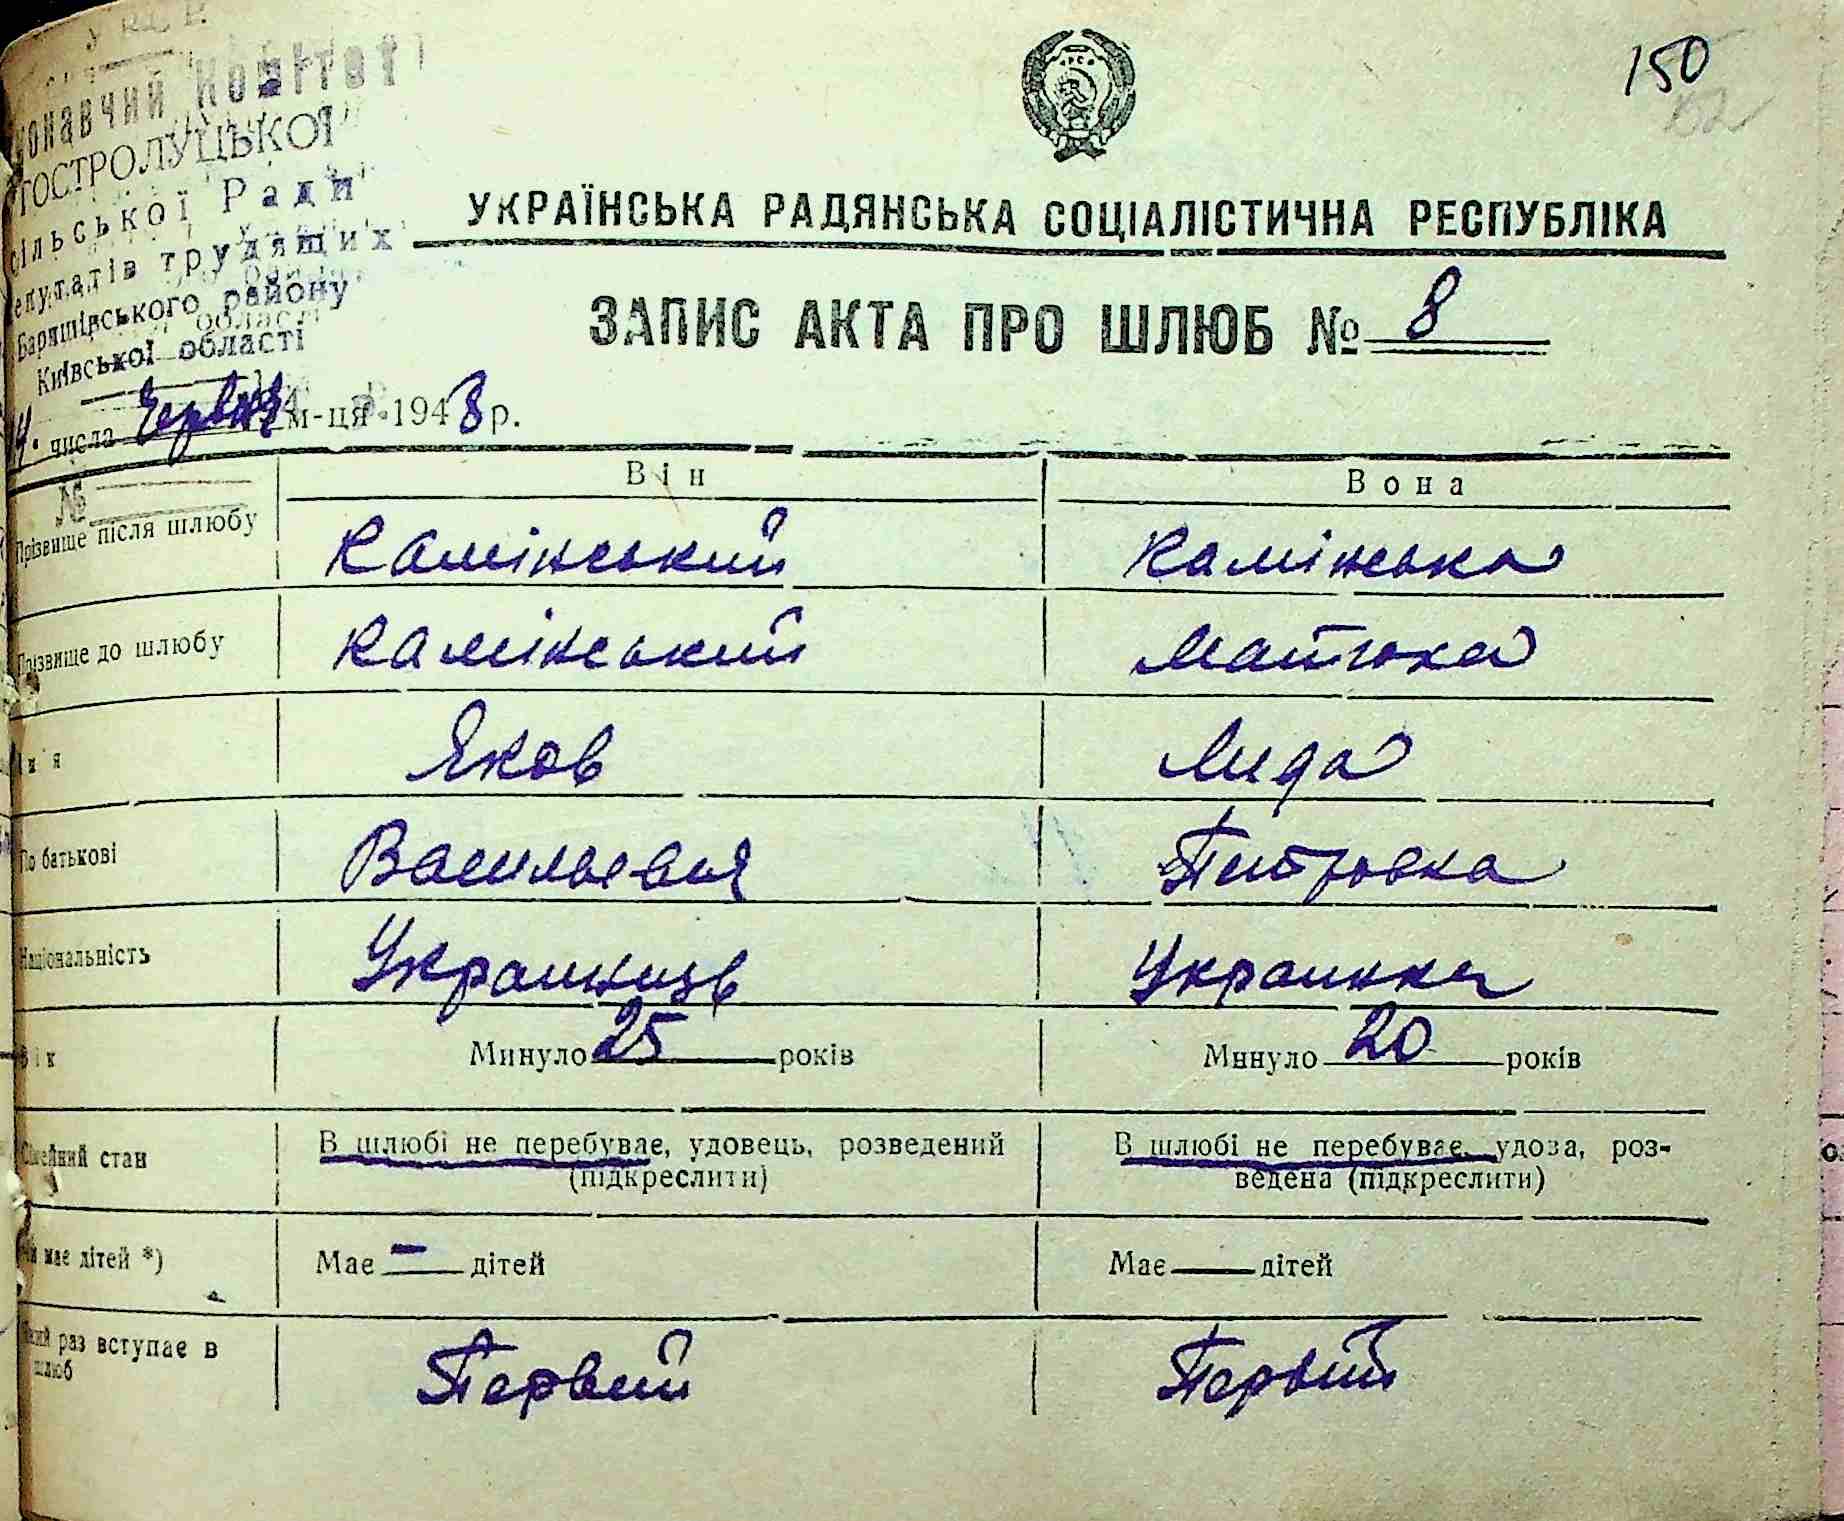 150
52
УКРАЇНСЬКА РАДЯНСЬКА СОЦІАЛІСТИЧНА РЕСПУБЛІКА
ЗАПИС АКТА ПРО ШЛЮБ № 8
конавчий Комітет
ГОСТРОЛУЦЬКОЇ
сільської Ради
епутатів трудящих
Баришівського району
Київської області
4. числа Червня м-ця 1948 р.
№
Він Вона
Прізвище після шлюбу Камінський Камінська
Прізвище до шлюбу Камінський Матюха
мя Яков Лида
По батькові Васильевич Питровна
Національність Украинець Украинка
Вік Минуло 25 років Минуло 20 років
Сімейний стан В шлюбі не перебуває, удовець, розведений В шлюбі не перебуває, удова, роз-
(підкреслити) ведена (підкреслити)
Чи має дітей *) Має — дітей Має дітей
який раз вступає в Первий Первий
шлюб